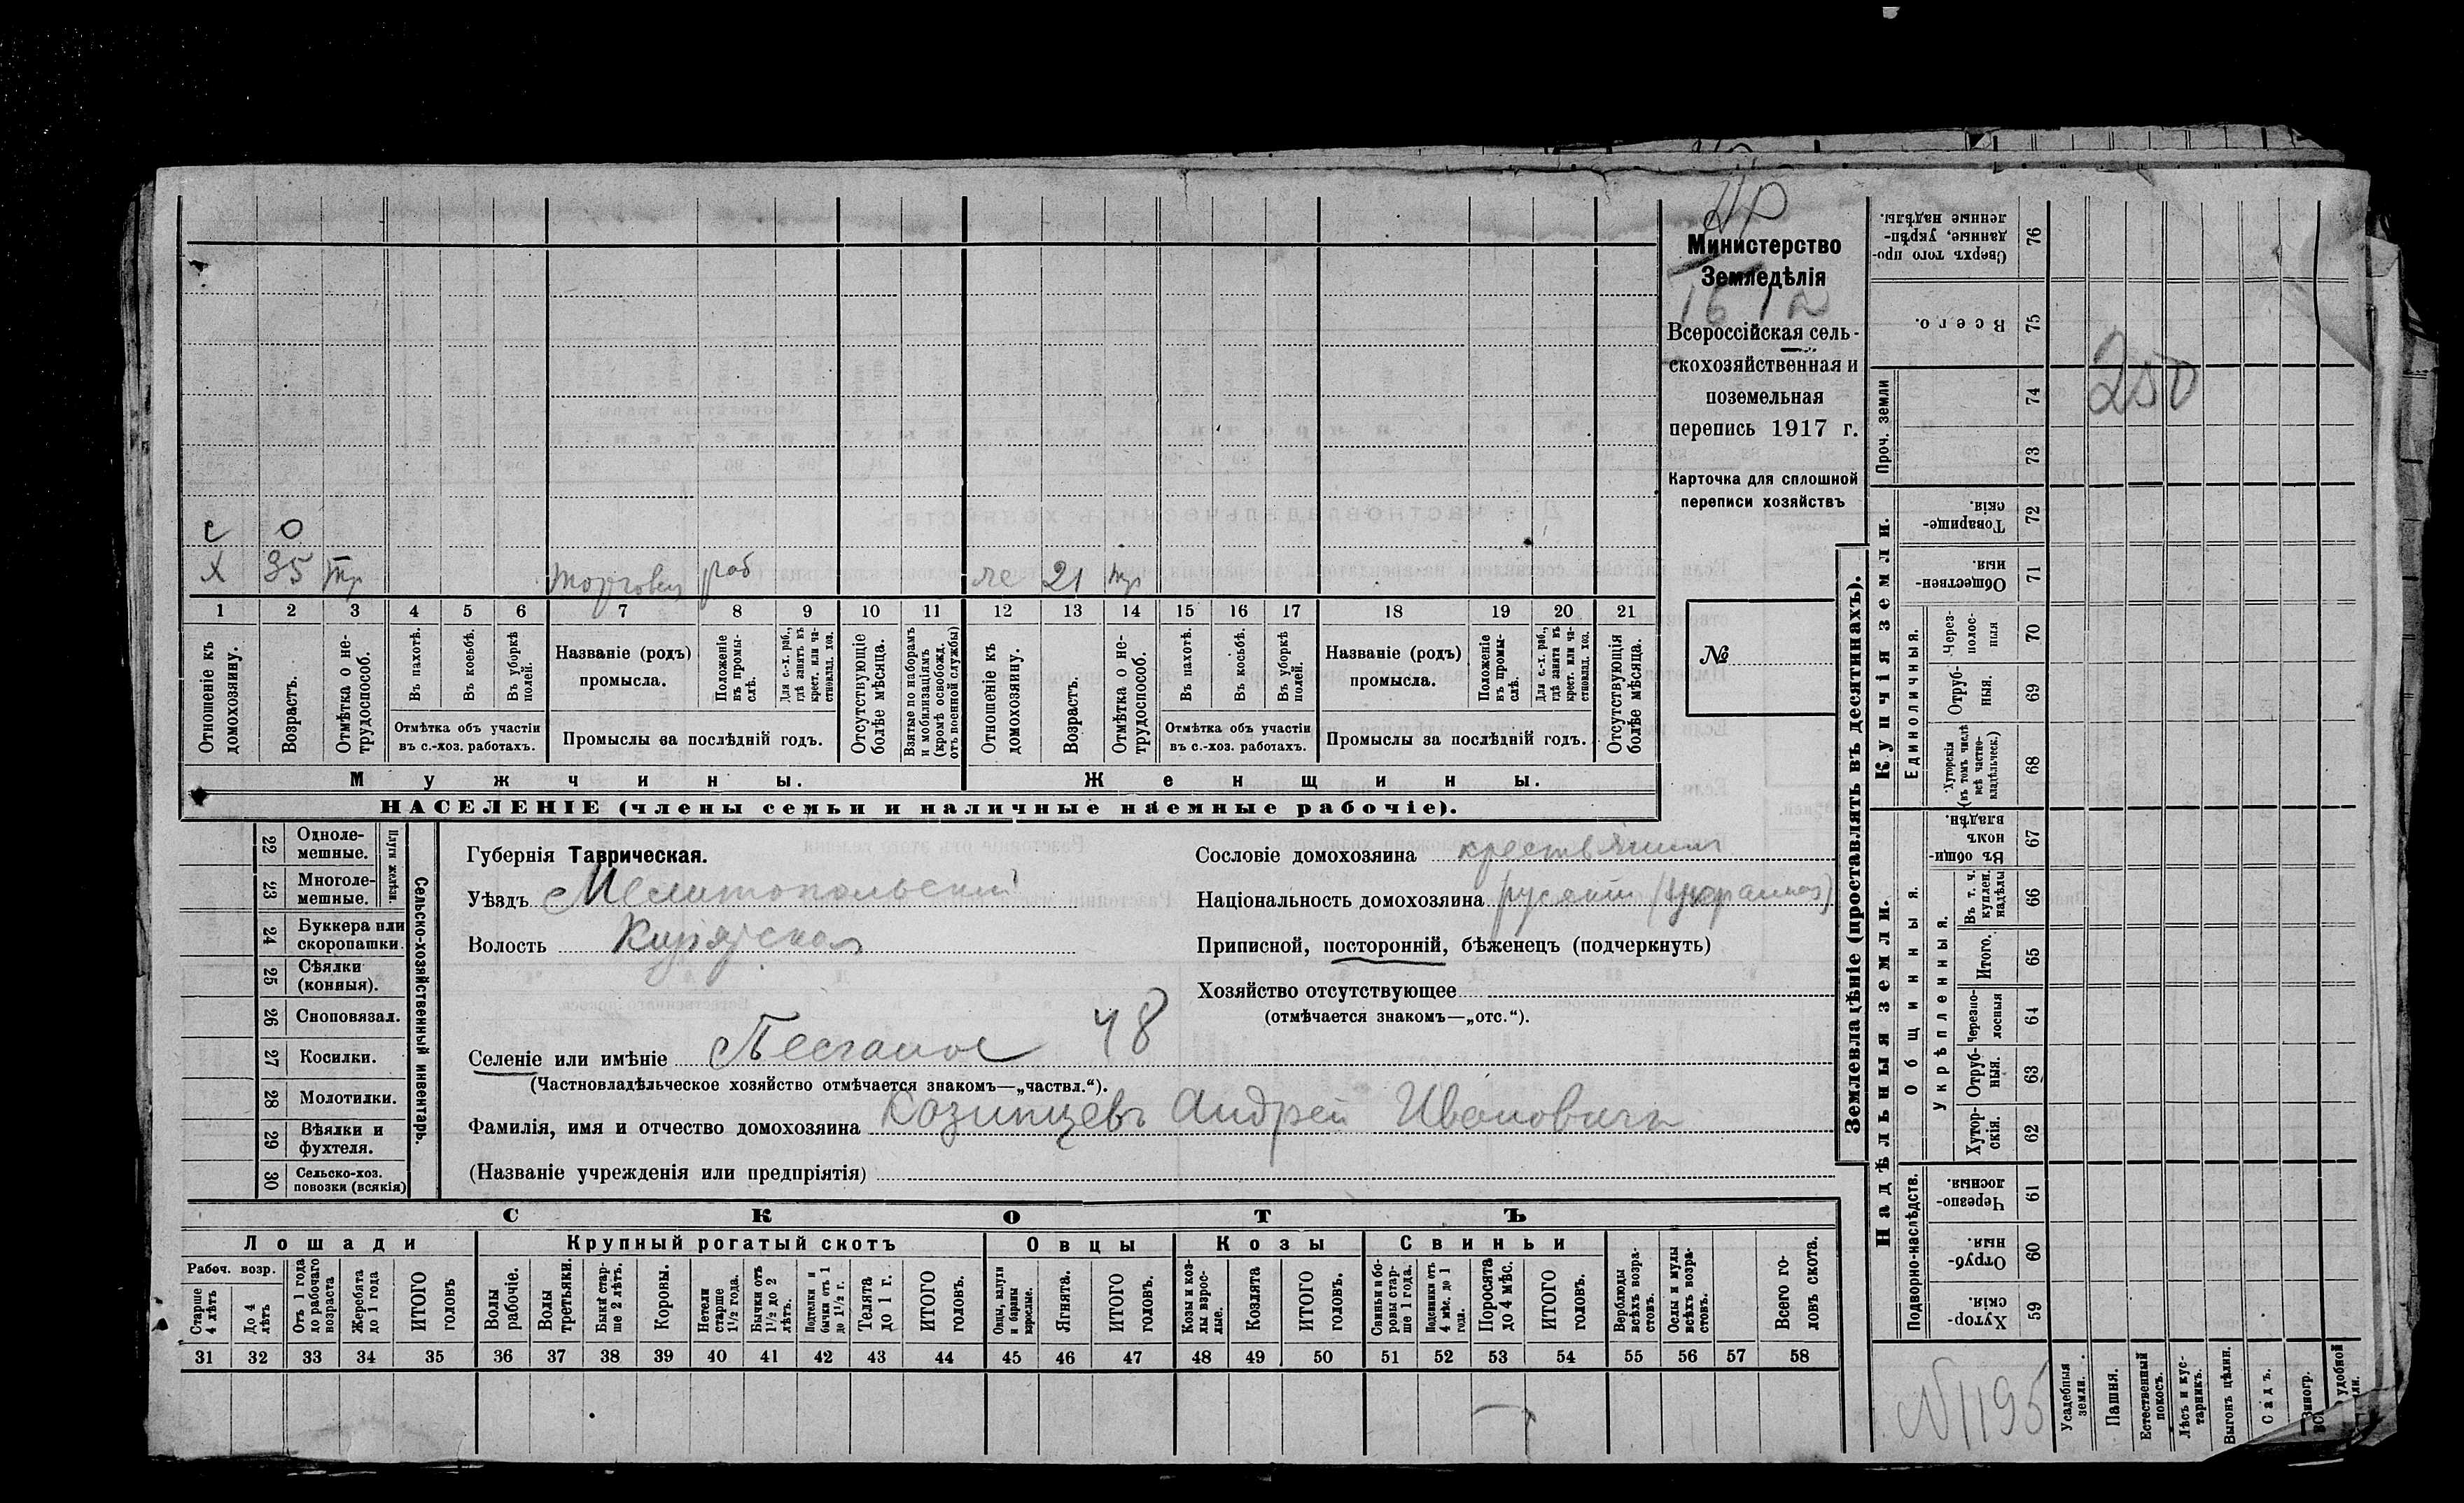 Министерство
Земледѣлія
Всероссійская сель-
скохозяйственная и
поземельная
перепись 1917 г.
Карточка для сплошной
переписи хозяйствъ
№
с 0
х 35 тр торговля раб же 21 тр
1 2 3 4 5 6 7 8 9 10 11 12 13 14 15 16 17 18 19 20 21
Отношеніе къ домохозяину.
Возрастъ.
Отмѣтка о нетрудоспособ.
Въ пахотѣ.
Въ косьбѣ.
Въ уборкѣ полей.
Отмѣтка объ участіи
въ с.-хоз. работахъ.
Названіе (родъ)
промысла.
Положеніе въ промыслѣ.
Для с.-х. раб., гдѣ занятъ въ крест. или частновлад. хоз.
Промыслы за послѣдній годъ.
Отсутствующіе болѣе мѣсяца.
Взятые по наборамъ и мобилизаціямъ (кромѣ освобожд. отъ военной службы)
Отношеніе къ домохозяину.
Возрастъ.
Отмѣтка о нетрудоспособ.
Въ пахотѣ.
Въ косьбѣ.
Въ уборкѣ полей.
Отмѣтка объ участіи
въ с.-хоз. работахъ.
Названіе (родъ)
промысла.
Положеніе въ промыслѣ.
Для с.-х. раб., гдѣ занята въ крест. или частновлад. хоз.
Промыслы за послѣдній годъ.
Отсутствующія болѣе мѣсяца.
Мужчины.
Женщины.
НАСЕЛЕНІЕ (члены семьи и наличные наемные рабочіе).
Сельско-хозяйственный инвентарь.
Плуги желѣзн.
22 Однолемешные.
23 Многолемешные.
24 Буккера или скоропашки.
25 Сѣялки (конныя).
26 Сноповязал.
27 Косилки.
28 Молотилки.
29 Вѣялки и фухтеля.
30 Сельско-хоз. повозки (всякія)
Губернія Таврическая.
Уѣздъ Мелитопольский
Волость
Сословіе домохозяина крестьянинъ
Національность домохозяина русский (украинец)
Приписной, посторонній, бѣженецъ (подчеркнуть)
Хозяйство отсутствующее
(отмѣчается знакомъ—„отс.“).
Селеніе или имѣніе Песчаное 48
(Частновладѣльческое хозяйство отмѣчается знакомъ—„частвл.“).
Фамилія, имя и отчество домохозяина Козинцевъ Андрей Ивановичъ
(Названіе учрежденія или предпріятія)
СКОТЪ
Лошади
Крупный рогатый скотъ
Овцы
Козы
Свиньи
Рабоч. возр.
Старше 4 лѣтъ
До 4 лѣтъ
Отъ 1 года до рабочаго возраста
Жеребята до 1 года
ИТОГО головъ
Волы рабочіе.
Волы третьяки.
Быки старше 2 лѣтъ.
Коровы.
Нетели старше 1½ года.
Бычки отъ 1½ до 2 лѣтъ.
Подтелки и бычки отъ 1 до 1½ г.
Телята до 1 г.
ИТОГО головъ.
Овцы, валухи и бараны взрослые.
Ягнята.
ИТОГО головъ.
Козы и козлы взрослые.
Козлята
ИТОГО головъ.
Свиньи и боровы старше 1 года.
Подсвинки отъ 4 мѣс. до 1 года.
Поросята до 4 мѣс.
ИТОГО головъ.
Верблюды всѣхъ возрастовъ.
Ослы и мулы всѣхъ возрастовъ.
Всего головъ скота.
31 32 33 34 35 36 37 38 39 40 41 42 43 44 45 46 47 48 49 50 51 52 53 54 55 56 57 58
Землевладѣніе (проставлять въ десятинахъ).
Надѣльныя земли.
Купчія земли.
Проч. земли
Подворно-наслѣдств.
Общинныя.
Укрѣпленныя.
Единоличныя.
Сверхъ того проданные, укрѣпленные надѣлы. 76
Всего. 75
74
73
Товарищескія. 72
Общественныя. 71
Черезполосныя 70
Отрубныя. 69
Хуторскія (въ томъ числѣ всѣ частновладѣльческ.) 68
Въ общинномъ владѣн. 67
Въ т. ч. куплен. надѣлы 66
Итого. 65
Черезполосныя 64
Отрубныя. 63
Хуторскія. 62
Черезполосныя. 61
Отрубныя. 60
Хуторскія 59
250
№1195
Усадебныя земли.
Пашня.
Естественный покосъ.
Лѣсъ и кустарникъ.
Выгонъ цѣлин.
Садъ.
Виногр.
удобной